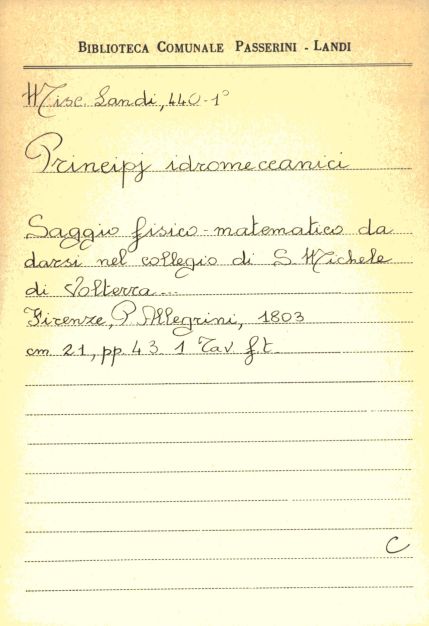 BIBLIOTECA COMUNALE PASSERINI - LANDI
Misc. Landi, 440-1°
Principj idromeccanici
Saggio fisico-matematico da
darsi nel collegio di S. Michele
di Volterra...
Firenze, P. Allegrini, 1803
cm. 21, pp. 43. 1 Tav f.t.
C